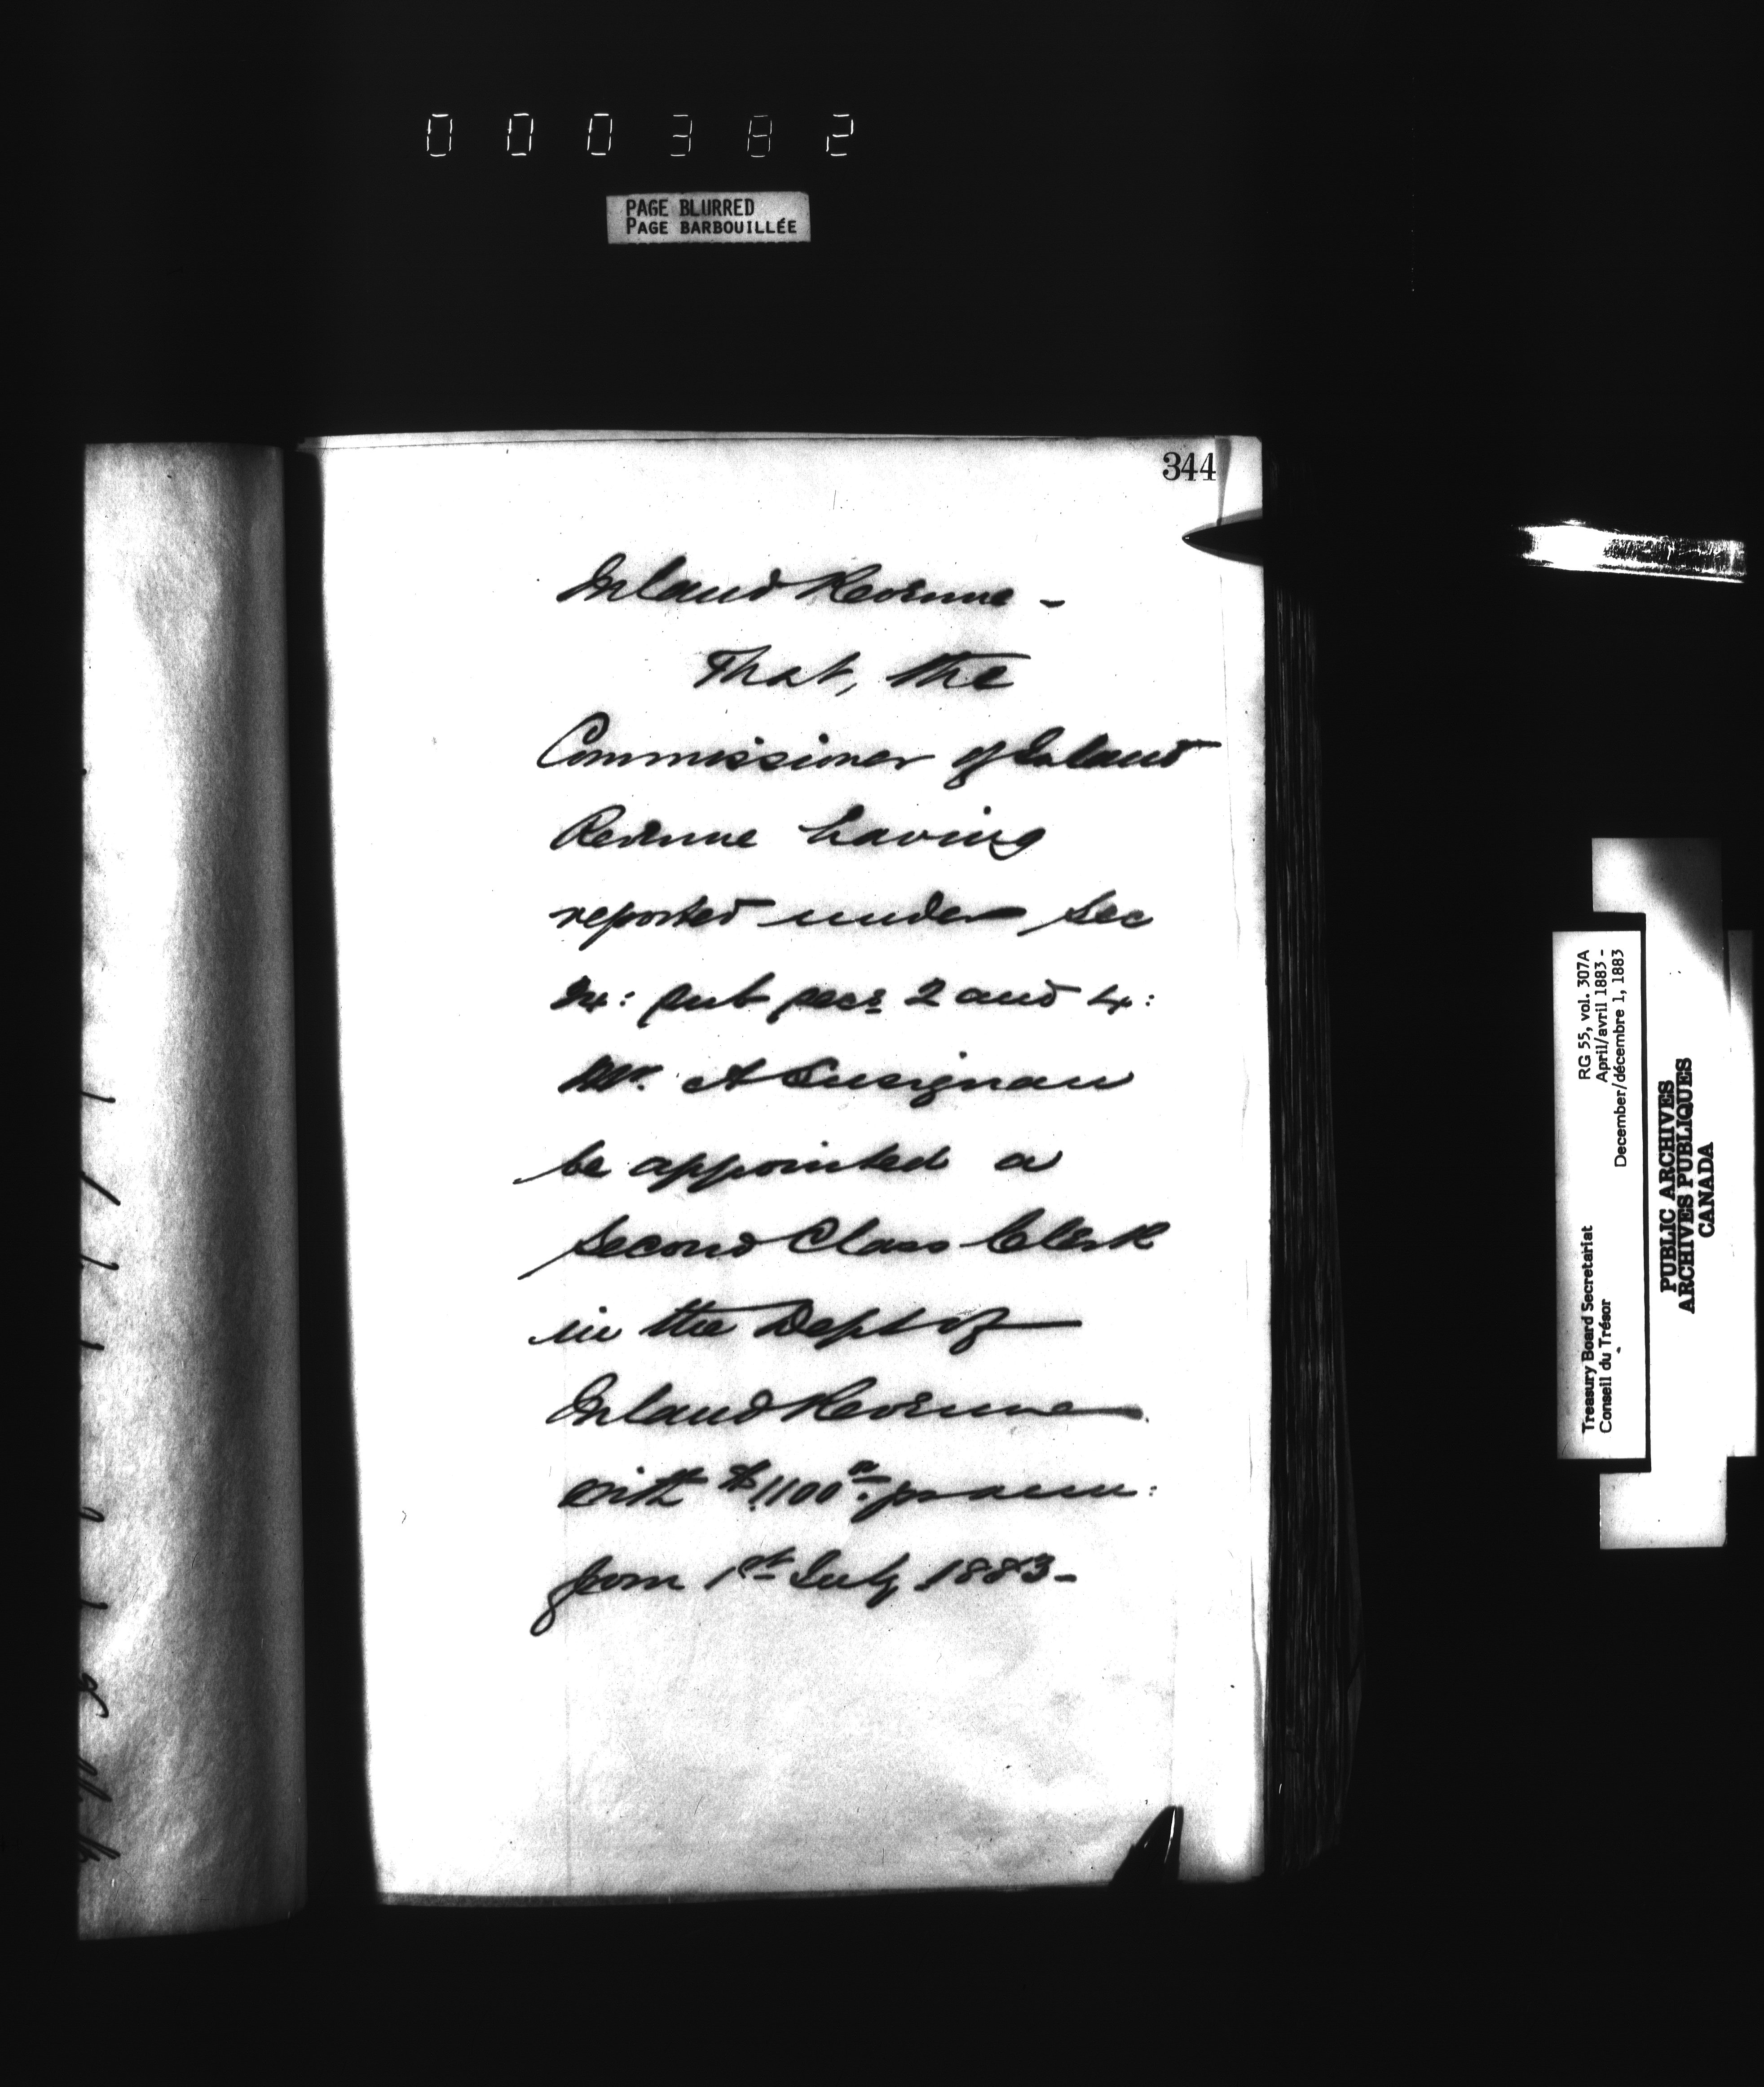 000382
PAGE BLURRED
PAGE BARBOUILLÉE
344
Inland Revenue -
That, the
Commissioner of Inland
Revenue having
reported under Sec
24: sub secs 2 and 4:
Mr. A Lusignan
be appointed a
Second Class Clerk
in the Dept of
Inland Revenue
with $1100 a:
from 1st July 1883-
RG 55, vol. 307A
April/avril 1883 -
December/décembre 1, 1883
Treasury Board Secretariat
Conseil du Trésor
PUBLIC ARCHIVES
ARCHIVES PUBLIQUES
CANADA